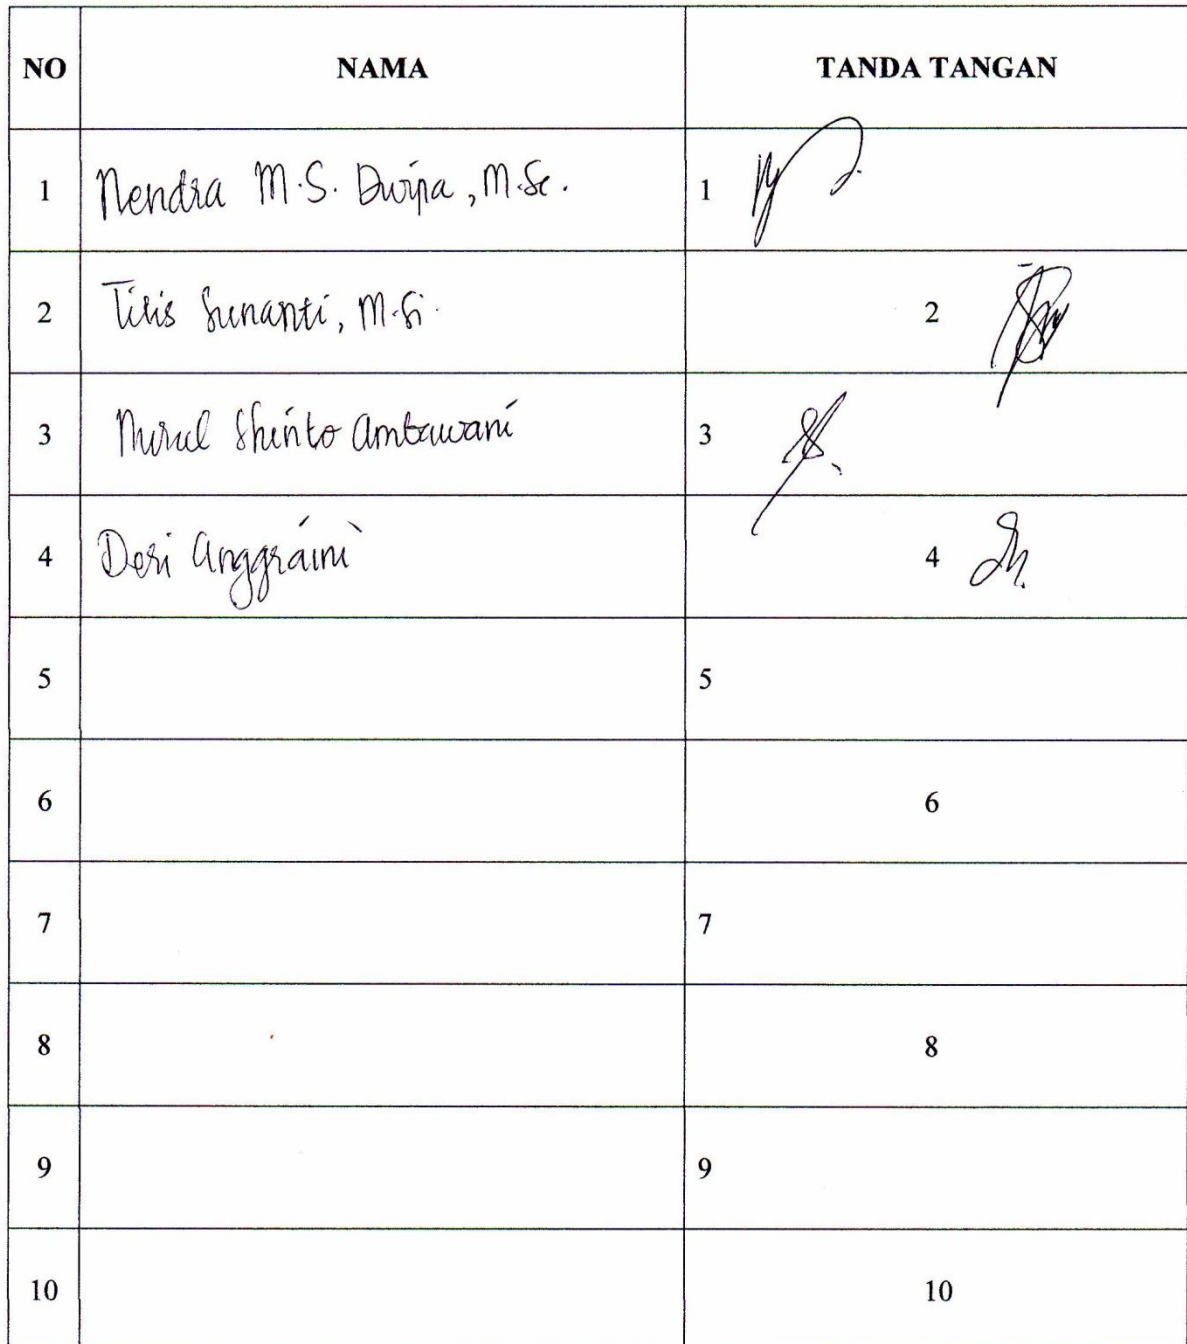 NO NAMA TANDA TANGAN
1 Nendra M.S. Dwipa, M.Sc. 1
2 Titis Sunanti, M.Si. 2
3 Nurul Shinto Ambawani 3
4 Desi Anggraini 4
5 5
6 6
7 7
8 8
9 9
10 10